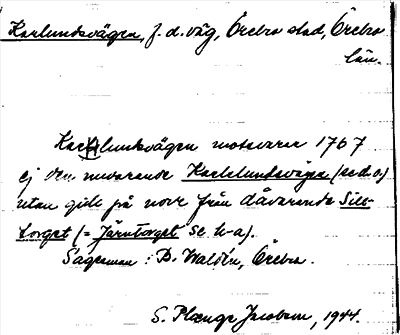 Karlundsvägen, f.d. väg, Örebro stad, Örebro
län.
Karlslundsvägen motsvarar 1767
ej den nuvarande Karlslundsvägen (se d.o.)
utan gick på norr från dåvarande Sill-
torget (= Järntorget se h-a).
Sagesman: B. Waldén, Örebro.
S. Plænge Jacobson, 1944.